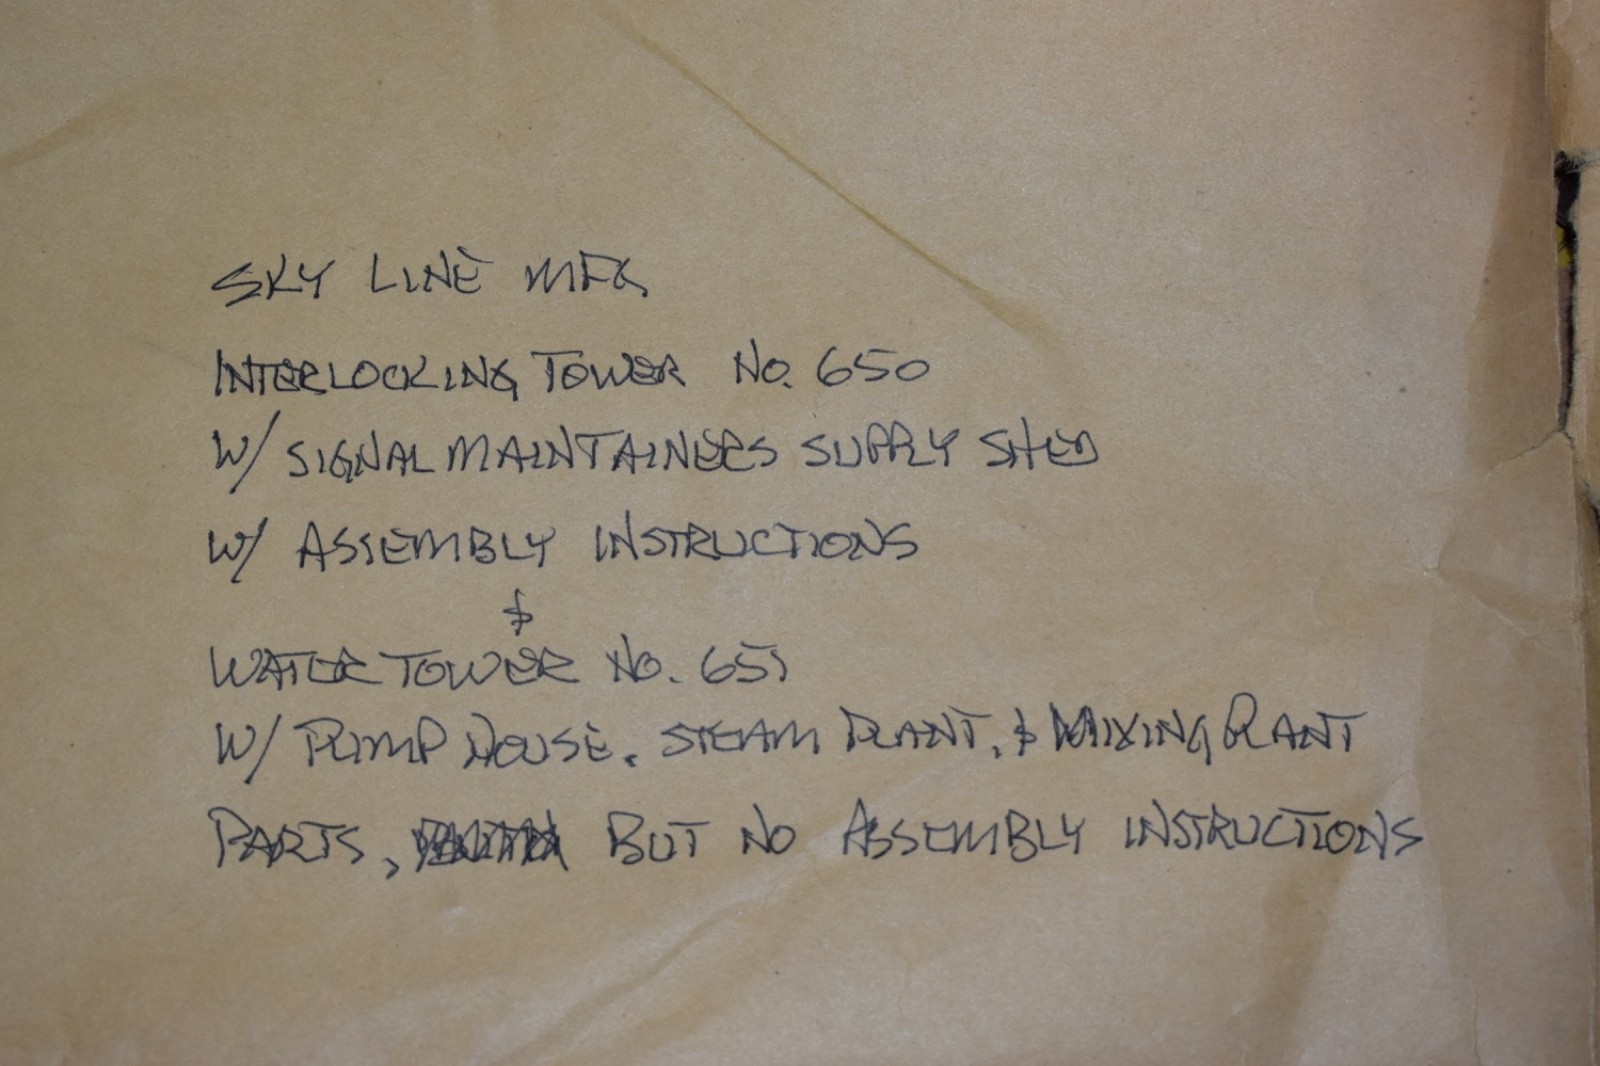 SKY LINE MFG
INTERLOCKING TOWER NO. 650
W/ SIGNAL MAINTAINERS SUPPLY SHED
W/ ASSEMBLY INSTRUCTIONS
&
WATER TOWER NO. 651
W/ PUMP HOUSE, STEAM PLANT, & MIXING PLANT
PARTS, BUT NO ASSEMBLY INSTRUCTIONS